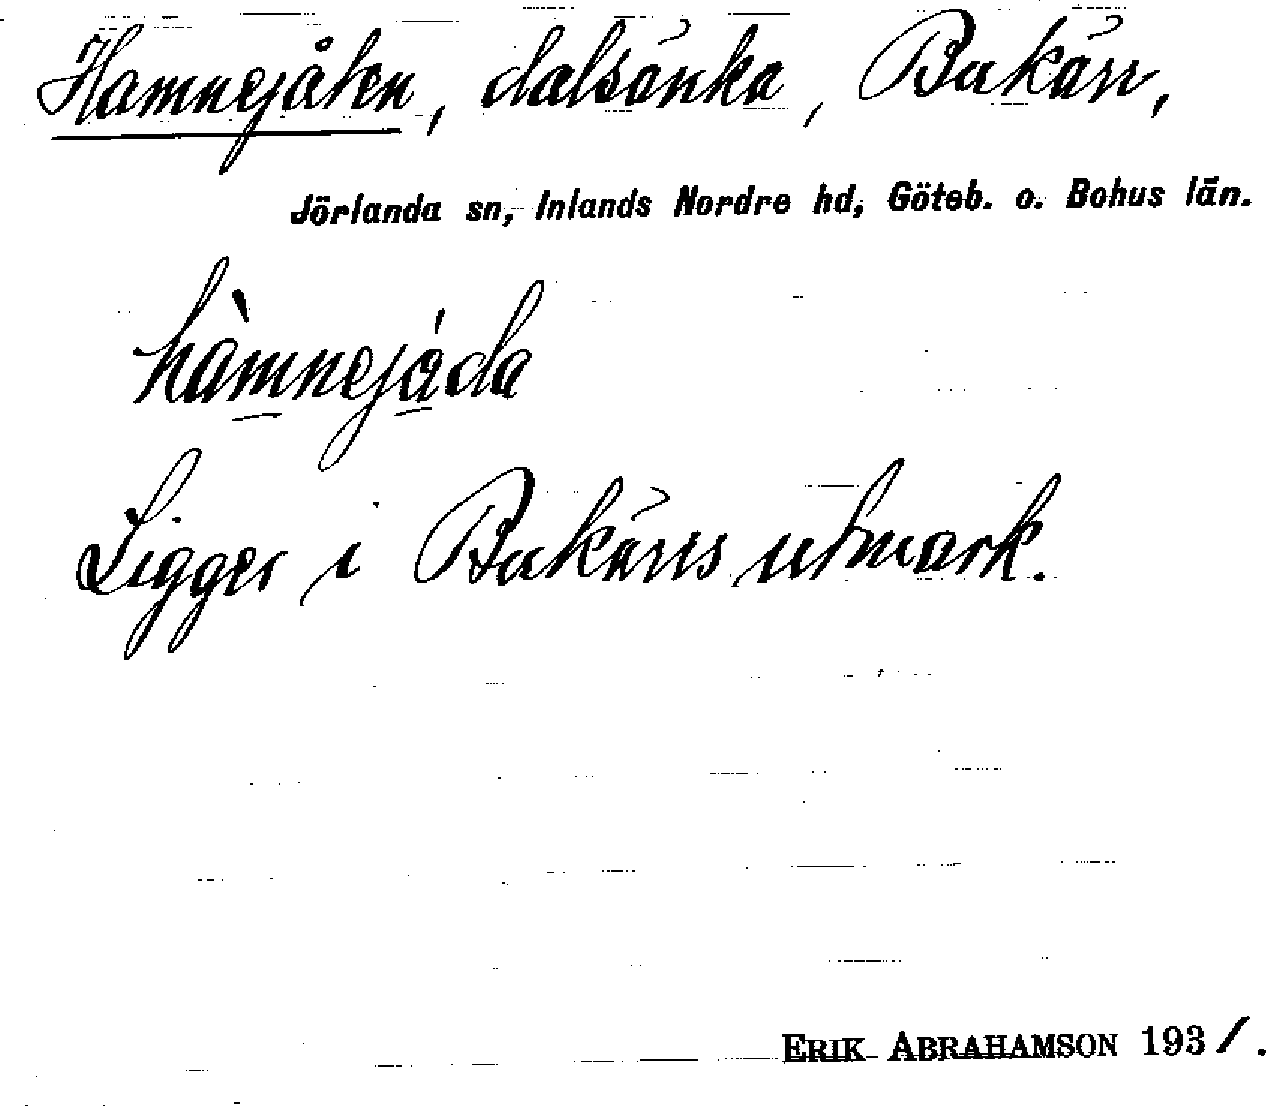 Hamnejålen, dalsänka, Bukärr,
Jörlanda sn, Inlands Nordre hd, Göteb. o. Bohus län.
hàmnejáda
Ligger i Bukärrs utmark.
ERIK ABRAHAMSON 1931.